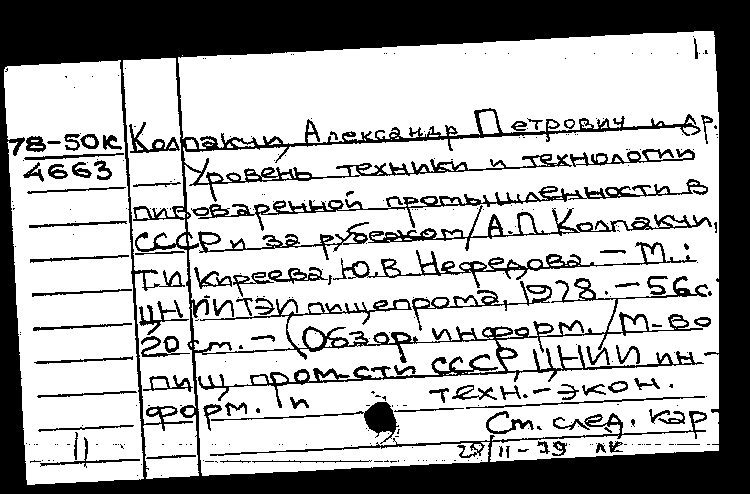 1.
78-50К Колпакчи, Александр Петрович и др.
4663 Уровень техники и технологии
пивоваренной промышленности в
СССР и за рубежом/А.П. Колпакчи,
Т.И. Киреева, Ю.В. Нефедова. — М.:
ЦНИИТЭИпищепрома, 1978. — 56с.
20 см. — (Обзор. информ. /М-во
пищ. пром-сти СССР, ЦНИИ ин-
форм. и техн.-экон.
Ст. след. карт
11
28/II-79 ЛК